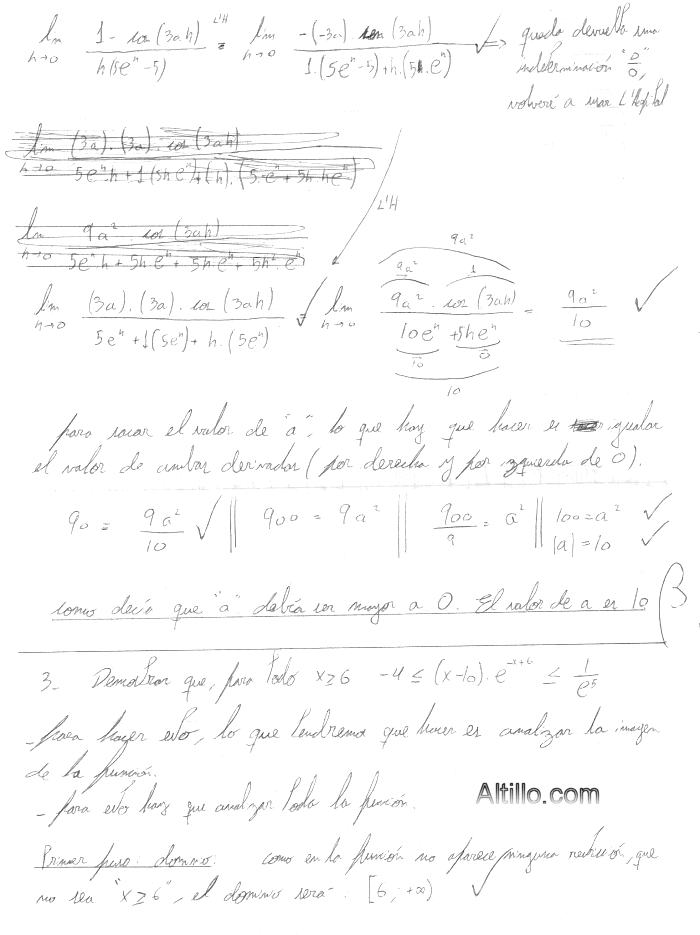 lim h→0 (1 - cos (3ah)) / (h(5e^h - 5)) L'H = lim h→0 (-(-3a) sen (3ah)) / (1·(5e^h - 5) + h·(5·e^h)) ✓ → queda devuelta una
indeterminación "0/0",
volveré a usar L'Hopital
lim h→0 ((3a)·(3a)·cos (3ah)) / (5e^h h + 1(5h e^h) + (h)·(5·e^h + 5h·he^h))
L'H
lim h→0 (9a²·cos (3ah)) / (5e^h h + 5h·e^h + 5h·e^h + 5h²·e^h)
9a²
9a² 1
lim h→0 ((3a)·(3a)·cos (3ah)) / (5e^h + 1(5e^h) + h·(5e^h)) ✓ = lim h→0 (9a²·cos (3ah)) / (10e^h + 5he^h) = 9a²/10 ✓
10 0
10
para sacar el valor de "a", lo que hay que hacer es igualar
el valor de ambas derivadas (por derecha y por izquierda de 0).
90 = 9a²/10 ✓ || 900 = 9a² || 900/9 = a² || 100 = a² ✓
|a| = 10 ✓
como decía que "a" debía ser mayor a 0. El valor de a es 10
3- Demostrar que, para todo x≥6 -4 ≤ (x-10)·e^(-x+6) ≤ 1/e⁵
- para hacer esto, lo que tendremos que hacer es analizar la imagen
de la función.
- para esto hay que analizar toda la función.
Altillo.com
Primer paso: dominio: como en la función no aparece ninguna restricción, que
no sea "x≥6", el dominio será: [6; +∞) ✓